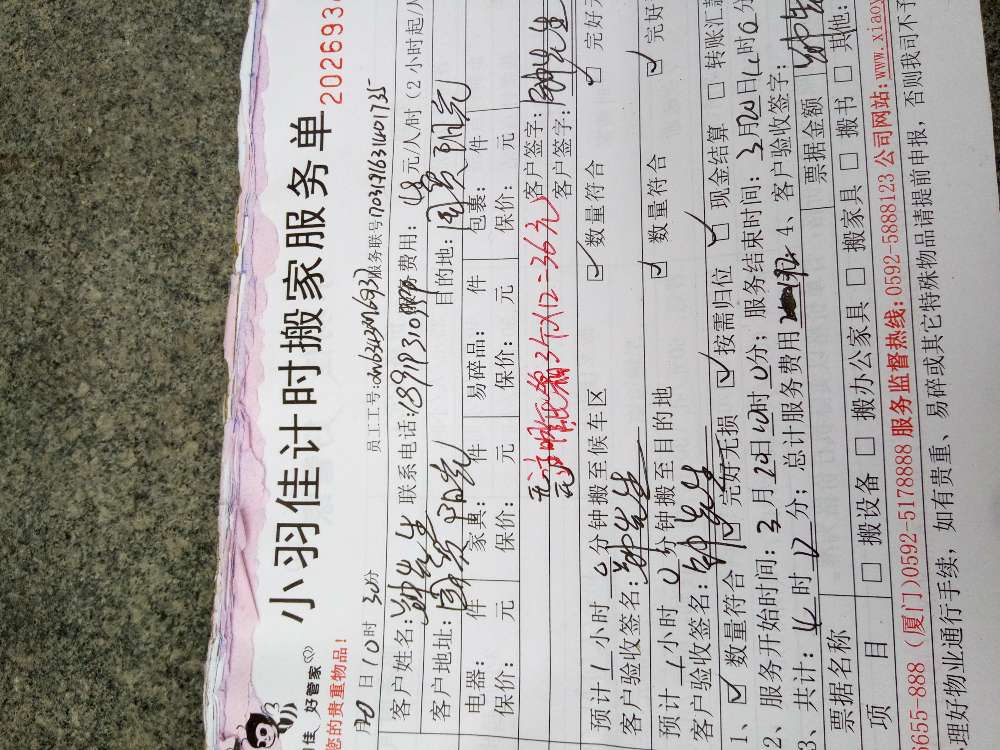 小羽佳计时搬家服务单
202693
佳、好管家
您的贵重物品！
月20日10时30分 员工工号: 服务联号:
客户姓名:钟先生 联系电话: 服务费用: 元/人/时（2小时起
客户地址:国贸阳光 目的地:国贸阳光
电器: 件 家具: 件 易碎品: 件 包裹: 件
保价: 元 保价: 元 保价: 元 保价: 元
3个X12=36元 客户签字:钟先生
预计1小时0分钟搬至候车区 ☑数量符合 完好
客户验收签名:钟先生 客户签字:
预计1小时0分钟搬至目的地 ☑数量符合 ☑完好
客户验收签名:钟先生
1、☑数量符合 ☑完好无损 ☑按需归位 ☑现金结算 □转账汇款
2、服务开始时间:3月20日10时0分; 服务结束时间:3月20日 时 分
3、共计:4时12分; 总计服务费用 4、客户验收签字:
票据名称 票据金额
项目 □搬设备 □搬办公家具 □搬家具 □搬书 □其他:
655-888（厦门）0592-5178888 服务监督热线:0592-5888123 公司网站:www.xiaoy
理好物业通行手续，如有贵重、易碎或其它特殊物品请提前申报，否则我司不予